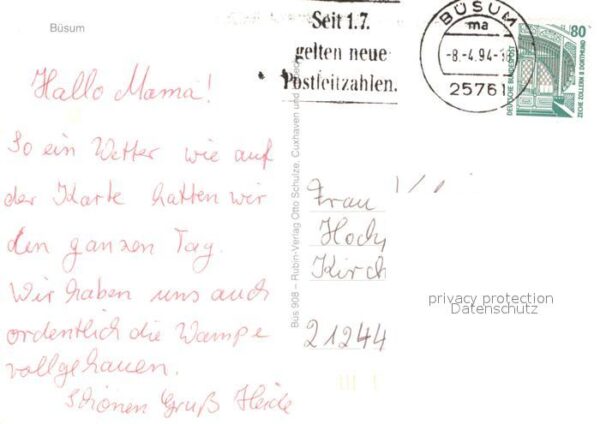 Büsum
Seit 1.7.
gelten neue
Postleitzahlen.
BÜSUM
ma
-8.-4.94-
25761
80
DEUTSCHE BUNDESPOST
ZECHE ZOLLERN II DORTMUND
Hallo Mama!
So ein Wetter wie auf
der Karte hatten wir
den ganzen Tag.
Wir haben uns auch
ordentlich die Wampe
vollgehauen.
Schönen Gruß Heide
Bus 908 – Rubin-Verlag Otto Schulze, Cuxhaven und
Frau
Kirch
21244
privacy protection
Datenschutz